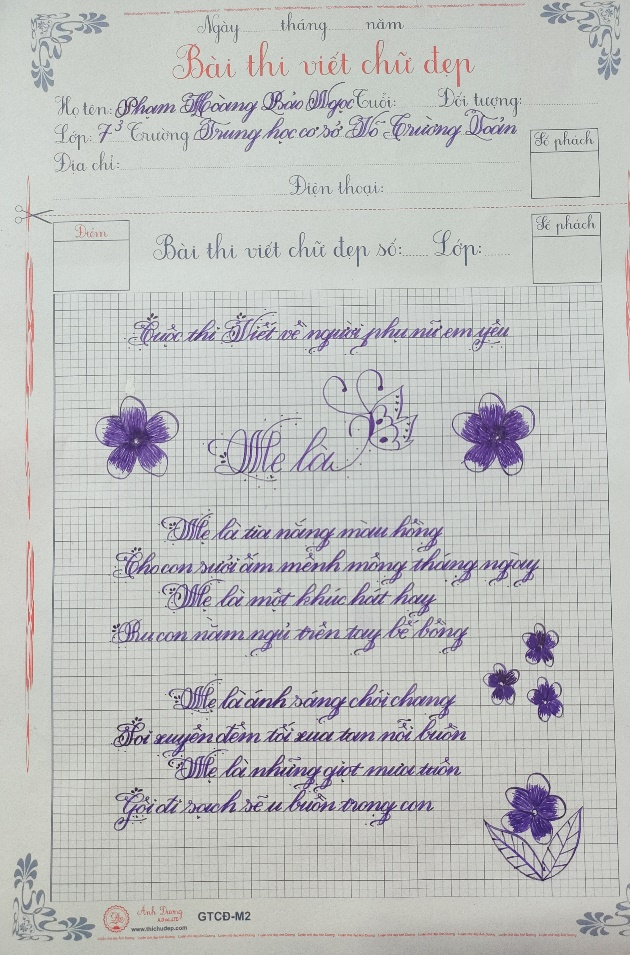 Ngày tháng năm
Bài thi viết chữ đẹp
Họ tên: Phạm Hoàng Bảo Ngọc Tuổi: Đối tượng:
Lớp: 7³ Trường Trung học cơ sở Võ Trường Toản
Số phách
Địa chỉ:
Điện thoại:
Điểm
Bài thi viết chữ đẹp số: Lớp:
Số phách
Cuộc thi Viết về người phụ nữ em yêu
Mẹ là
Mẹ là tia nắng màu hồng
Cho con sưởi ấm mênh mông tháng ngày
Mẹ là một khúc hát hay
Ru con nằm ngủ trên tay bế bồng
Mẹ là ánh sáng chói chang
Soi xuyên đêm tối xua tan nỗi buồn
Mẹ là những giọt mưa tuôn
Gội đi sạch sẽ u buồn trong con
Ánh Dương
www.thichudep.com
GTCĐ-M2